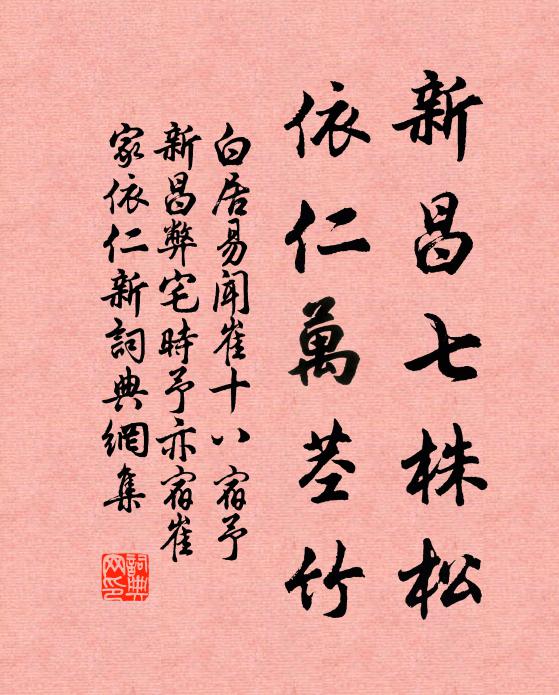 新昌七株松
依仁萬莖竹
白居易聞崔十八宿予
新昌弊宅時予亦宿崔
家依仁新詞典網集
詞典網印